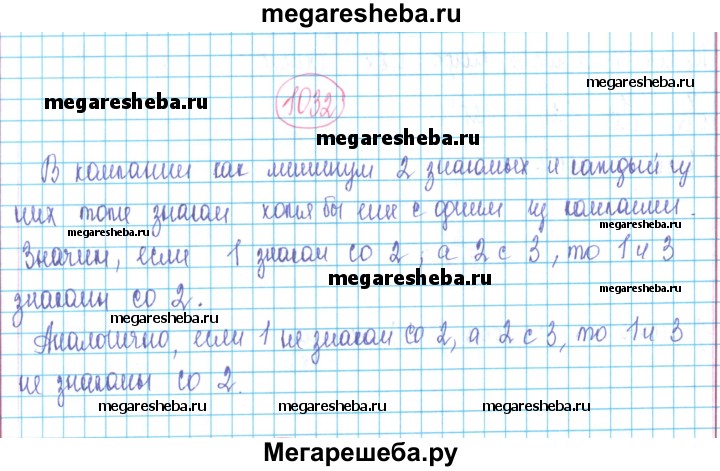 megaresheba.ru
megaresheba.ru
1032
megaresheba.ru
megaresheba.ru
В компании как минимум 2 знакомых и каждый из
них тоже знаком хотя бы еще с одним из компании.
megaresheba.ru
megaresheba.ru
Значит, если 1 знаком со 2, а 2 с 3, то 1 и 3
megaresheba.ru
знакомы со 2.
megaresheba.ru
megaresheba.ru
Аналогично, если 1 не знаком со 2, а 2 с 3, то 1 и 3
не знакомы со 2.
megaresheba.ru
megaresheba.ru
megaresheba.ru
megaresheba.ru
Мегарешеба.ру